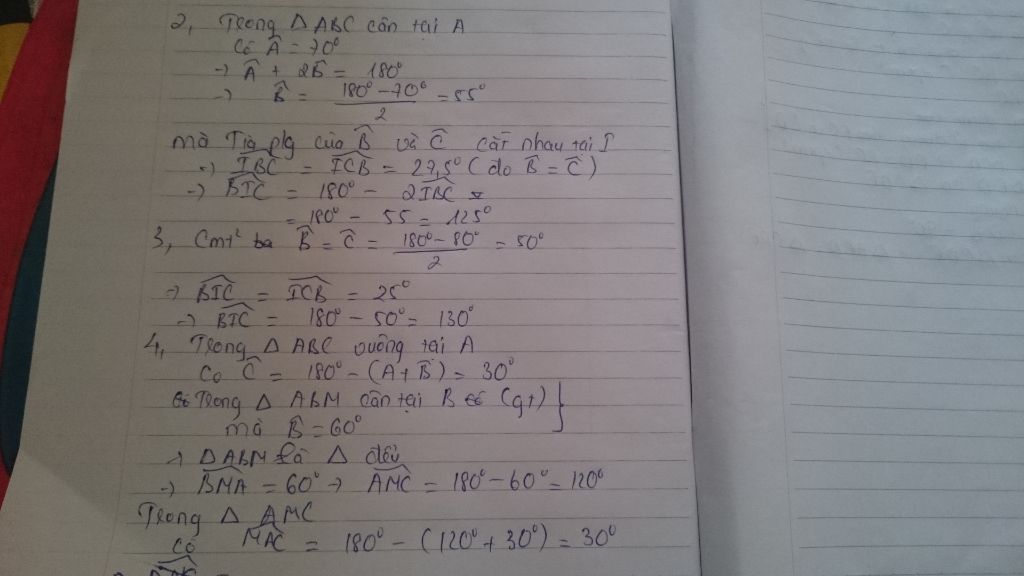 2, Trong Δ ABC cân tại A
Có Â = 70°
→ Â + 2B̂ = 180°
→ B̂ = (180° - 70°)/2 = 55°
mà Tia p/g của B̂ và Ĉ cắt nhau tại I
→ IBC = ICB = 27,5° (do B̂ = Ĉ)
→ BIC = 180° - 2IBC
= 180° - 55 = 125°
3, Cmt² B̂ = Ĉ = (180° - 80°)/2 = 50°
→ BIC = ICB = 25°
→ BIC = 180° - 50° = 130°
4, Trong Δ ABC vuông tại A
Có Ĉ = 180° - (A + B̂) = 30°
Trong Δ ABM cân tại B (gt) }
mà B̂ = 60°
→ ΔABM là Δ đều
→ BMA = 60° → AMC = 180° - 60° = 120°
Trong Δ AMC
Có MAC = 180° - (120° + 30°) = 30°